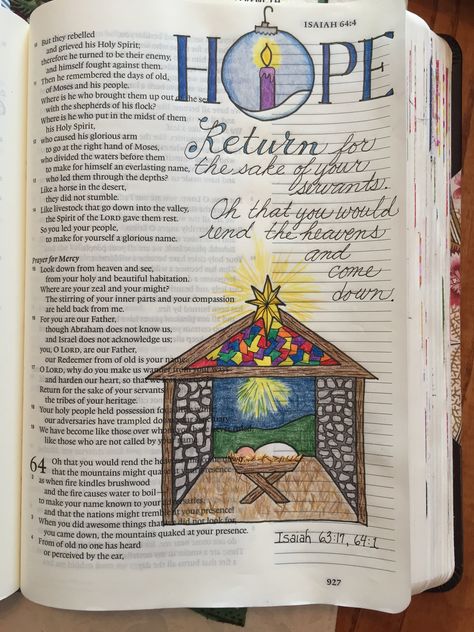 ISAIAH 64:4
HOPE
10 But they rebelled
and grieved his Holy Spirit;
therefore he turned to be their enemy,
and himself fought against them.
11 Then he remembered the days of old,
of Moses and his people.
Where is he who brought them up out of the sea
with the shepherds of his flock?
Where is he who put in the midst of them
his Holy Spirit,
12 who caused his glorious arm
to go at the right hand of Moses,
who divided the waters before them
to make for himself an everlasting name,
13 who led them through the depths?
Like a horse in the desert,
they did not stumble.
14 Like livestock that go down into the valley,
the Spirit of the LORD gave them rest.
So you led your people,
to make for yourself a glorious name.
Prayer for Mercy
15 Look down from heaven and see,
from your holy and beautiful habitation.
Where are your zeal and your might?
The stirring of your inner parts and your compassion
are held back from me.
16 For you are our Father,
though Abraham does not know us,
and Israel does not acknowledge us;
you, O LORD, are our Father,
our Redeemer from of old is your name.
17 O LORD, why do you make us wander from your ways
and harden our heart, so that we
Return for the sake of your servants
the tribes of your heritage.
18 Your holy people held possession for a
our adversaries have trampled down
19 We have become like those over whom you
like those who are not called by your name.
64 Oh that you would rend the heavens
that the mountains might quake at your presence
2 as when fire kindles brushwood
and the fire causes water to boil
to make your name known to your adversaries,
and that the nations might tremble at your presence!
3 When you did awesome things that we did not look for,
you came down, the mountains quaked at your presence.
4 From of old no one has heard
or perceived by the ear,
Return for
the sake of your
servants.
Oh that you would
rend the heavens
and
come
down.
Isaiah 63:17, 64:1
927